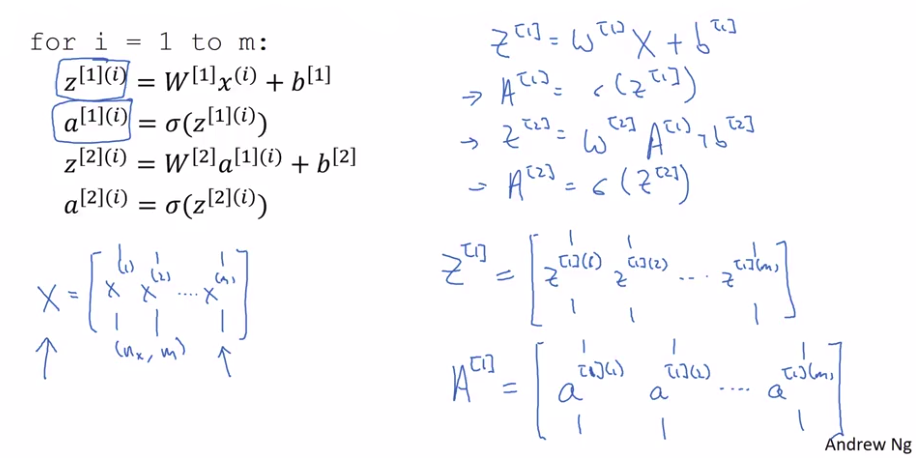 for i = 1 to m:
z^[1](i) = W^[1]x^(i) + b^[1]
a^[1](i) = σ(z^[1](i))
z^[2](i) = W^[2]a^[1](i) + b^[2]
a^[2](i) = σ(z^[2](i))
X = [ x^(1) x^(2) .... x^(m) ]
(n_x, m)
Z^[1] = W^[1] X + b^[1]
→ A^[1] = σ(Z^[1])
→ Z^[2] = W^[2] A^[1] + b^[2]
→ A^[2] = σ(Z^[2])
Z^[1] = [ z^[1](1) z^[1](2) .... z^[1](m) ]
A^[1] = [ a^[1](1) a^[1](2) .... a^[1](m) ]
Andrew Ng